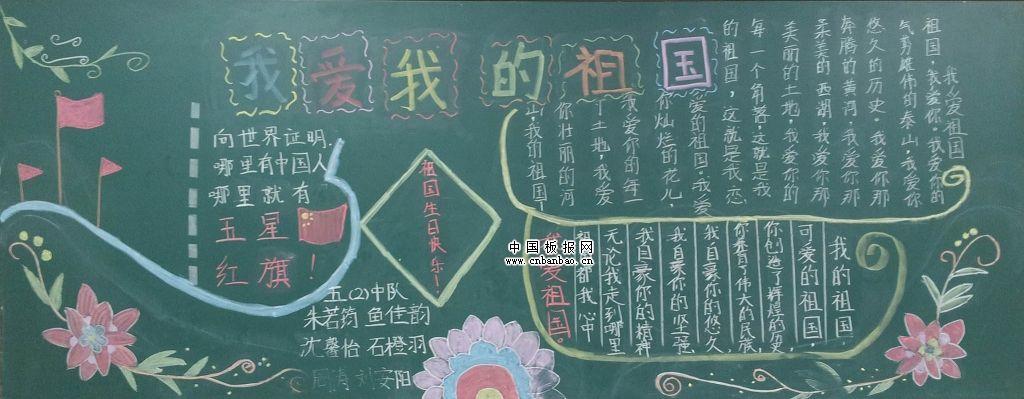 我爱我的祖国
向世界证明.
哪里有中国人
哪里就有
五星
红旗！
祖国生日快乐！
五(2)中队
朱若筠 鱼佳韵
沈馨怡 石橙羽
周涛 刘安阳
我爱祖国
祖国，我爱你。我爱你的
气势雄伟的泰山，我爱你
悠久的历史。我爱你那
奔腾的黄河，我爱你那
柔美的西湖，我爱你那
美丽的土地，我爱你的
每一个角落，这就是我
的祖国，这就是我恋
爱的祖国。我爱
你灿烂的花儿，
我爱你的每一
寸土地，我爱
你壮丽的河
山，我的祖国！
我的祖国
可爱的祖国，
你创造了辉煌的历史，
你养育了伟大的民族，
我自豪你的悠久，
我自豪你的坚强
我自豪你的精神
无论我走到哪里
都我心中
爱祖国。
中国板报网
www.cnbanbao.cn